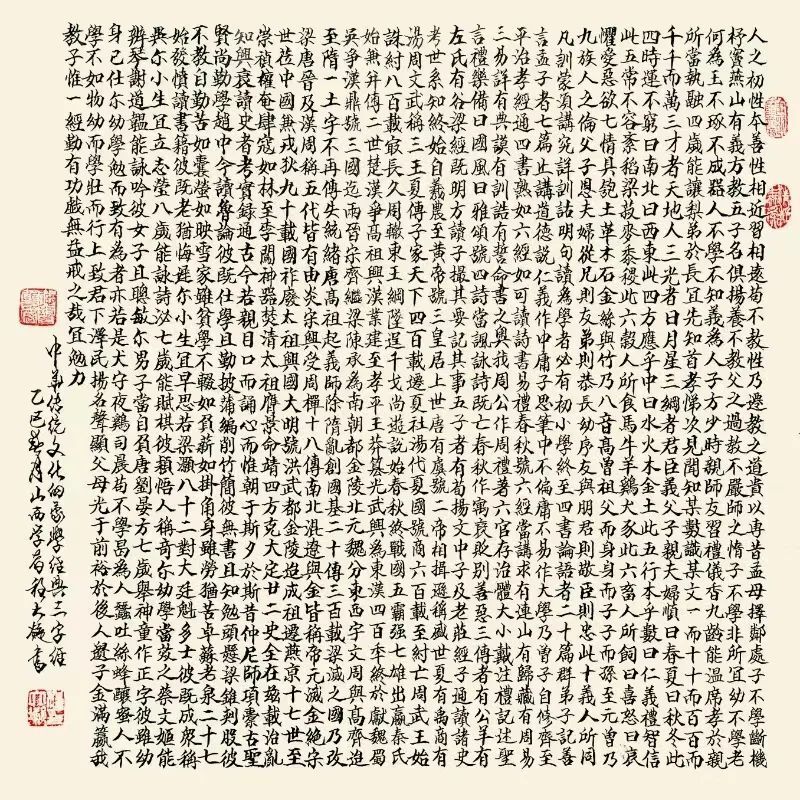 人之初性本善性相近習相遠苟不教性乃遷教之道貴以專昔孟母擇鄰處子不學斷機
杼竇燕山有義方教五子名俱揚養不教父之過教不嚴師之惰子不學非所宜幼不學老
何為玉不琢不成器人不學不知義為人子方少時親師友習禮儀香九齡能溫席孝於親
所當執融四歲能讓梨弟於長宜先知首孝悌次見聞知某數識某文一而十十而百百而
千千而萬三才者天地人三光者日月星三綱者君臣義父子親夫婦順曰春夏曰秋冬此
四時運不窮曰南北曰西東此四方應乎中曰水火木金土此五行本乎數曰仁義禮智信
此五常不容紊稻粱菽麥黍稷此六穀人所食馬牛羊雞犬豕此六畜人所飼曰喜怒曰哀
懼愛惡欲七情具匏土革木石金絲與竹乃八音高曾祖父而身身而子子而孫至元曾乃
九族人之倫父子恩夫婦從兄則友弟則恭長幼序友與朋君則敬臣則忠此十義人所同
凡訓蒙須講究詳訓詁明句讀為學者必有初小學終至四書論語者二十篇群弟子記善
言孟子者七篇止講道德說仁義作中庸子思筆中不偏庸不易作大學乃曾子自修齊至
平治孝經通四書熟如六經如可讀詩書易禮春秋號六經當講求有連山有歸藏有周易
三易詳有典謨有訓誥有誓命書之奧我周公作周禮著六官存治體大小戴注禮記述聖
言禮樂備曰國風曰雅頌號四詩當諷詠詩既亡春秋作寓褒貶別善惡三傳者有公羊有
左氏有谷梁經既明方讀子撮其要記其事五子者有荀揚文中子及老莊經子通讀諸史
考世系知終始自羲農至黃帝號三皇居上世唐有虞號二帝相揖遜稱盛世夏有禹商有
湯周文武稱三王夏傳子家天下四百載遷夏社湯伐夏國號商六百載至紂亡周武王始
誅紂八百載最長久周轍東王綱墜逞干戈尚遊說始春秋終戰國五霸强七雄出嬴秦氏
始兼并傳二世楚漢爭高祖興漢業建至孝平王莽篡光武興為東漢四百年終於獻魏蜀
吳爭漢鼎號三國迄兩晉宋齊繼梁陳承為南朝都金陵北元魏分東西宇文周與高齊迨
至隋一土宇不再傳失統緒唐高祖起義師除隋亂創國基二十傳三百載梁滅之國乃改
梁唐晉及漢周稱五代皆有由炎宋興受周禪十八傳南北混遼與金皆稱帝元滅金絕宋
世蒞中國兼戎狄九十載國祚廢太祖興國大明號洪武都金陵迨成祖遷燕京十七世至
崇禎權奄肆寇如林至李闖神器焚清太祖膺景命靖四方克大定廿二史全在茲載治亂
知興衰讀史者考實錄通古今若親目口而誦心而惟朝于斯夕於斯昔仲尼師項橐古聖
賢尚勤學趙中令讀魯論彼既仕學且勤披蒲編削竹簡彼無書且知勉頭懸梁錐刺股彼
不教自勤苦如囊螢如映雪家雖貧學不輟如負薪如掛角身雖勞猶苦卓蘇老泉二十七
始發憤讀書籍彼既老猶悔遲尔小生宜早思若梁灝八十二對大廷魁多士彼既成衆稱
異尔小生宜立志瑩八歲能詠詩泌七歲能賦棋彼穎悟人稱奇尔幼學當效之蔡文姬能
辨琴謝道韞能詠吟彼女子且聰敏尔男子當自警唐劉晏方七歲舉神童作正字彼雖幼
身已仕尔幼學勉而致有為者亦若是犬守夜鷄司晨苟不學曷為人蠶吐絲蜂釀蜜人不
學不如物幼而學壯而行上致君下澤民揚名聲顯父母光于前裕於後人遺子金滿籯我
教子惟一經勤有功戲無益戒之哉宜勉力
中華傳統文化的蒙學經典三字經
乙巳年月山西學府程大梅書